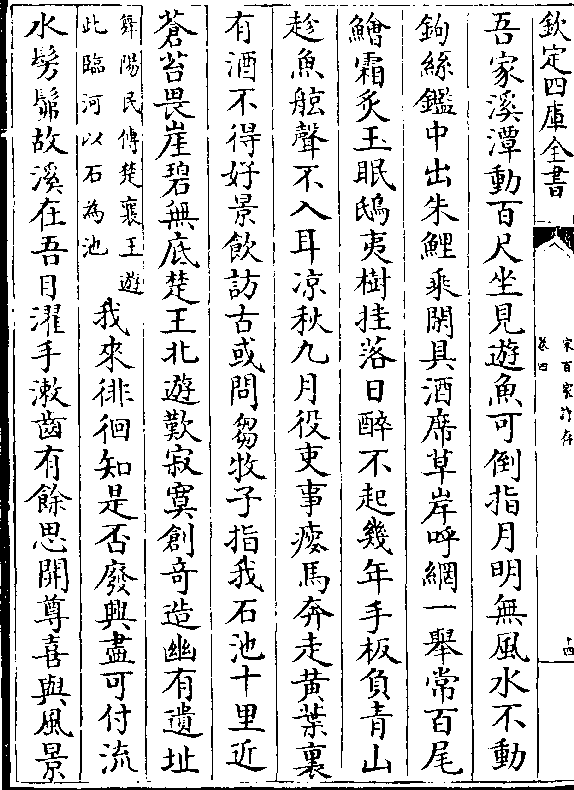 欽定四庫全書
宋百家詩存
卷四
十四
吾家溪潭動百尺坐見遊魚可倒指月明無風水不動
鉤絲鑑中出朱鯉乘閑具酒席草岸呼網一舉常百尾
鱠霜炙玉眠鴟夷樹挂落日醉不起幾年手板負青山
趁魚舷聲不入耳凉秋九月役吏事瘦馬奔走黄葉裏
有酒不得好景飲訪古或問芻牧子指我石池十里近
蒼苔畏崖碧無底楚王北遊歎寂寞創竒造幽有遺址
舞陽民傳楚襄王遊
此臨河以石為池
我來徘徊知是否廢興盡可付流
水髣髴故溪在吾目濯手漱齒有餘思開尊喜與風景